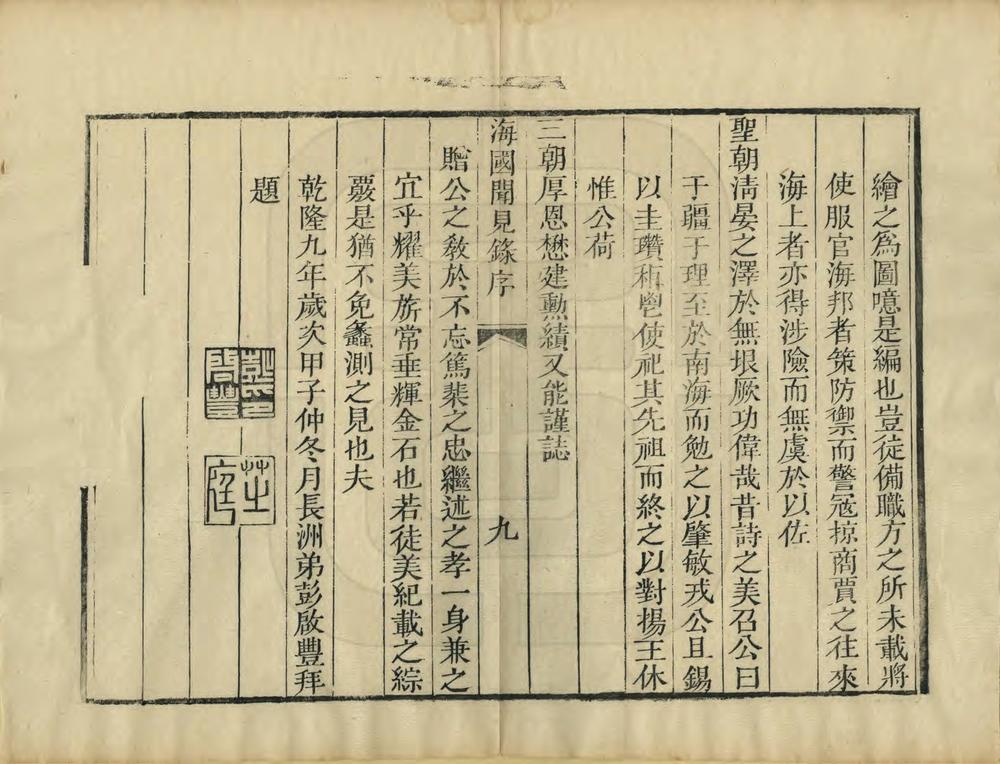 繪之爲圖噫是編也豈徒備職方之所未載將
使服官海邦者策防禦而警寇掠商賈之往來
海上者亦得涉險而無虞於以佐
聖朝清晏之澤於無垠厥功偉哉昔詩之美召公曰
于疆于理至於南海而勉之以肇敏戎公且錫
以圭瓚秬鬯使祀其先祖而終之以對揚王休
惟公荷
三朝厚恩懋建勲績又能謹誌
海國聞見錄序 九
贈公之敎於不忘篤棐之忠繼述之孝一身兼之
宜乎耀美旂常垂輝金石也若徒美紀載之綜
覈是猶不免蠡測之見也夫
乾隆九年歲次甲子仲冬月長洲弟彭啟豐拜
題
彭啓豐印
芝庭